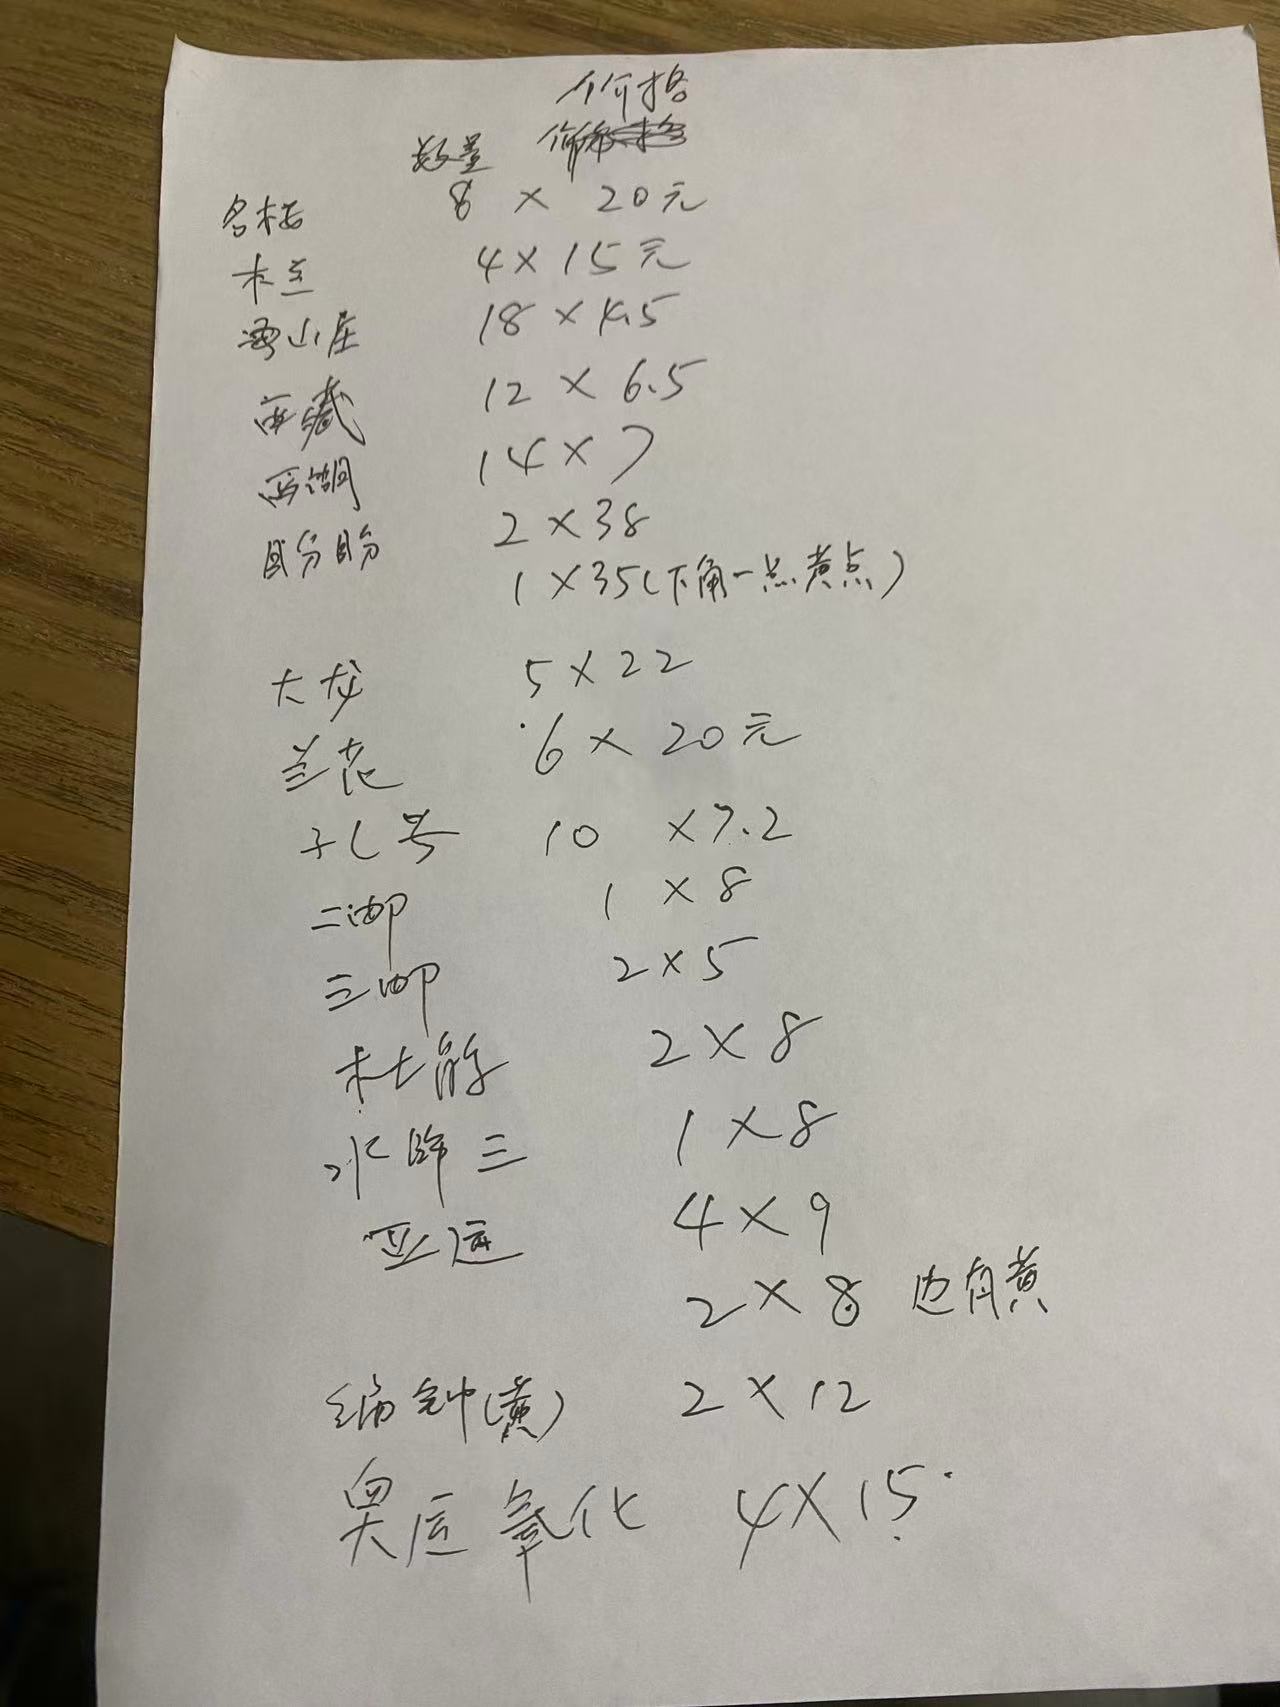 价格
数量
名楼 8 × 20元
木兰 4×15元
避暑山庄 18×4.5
西藏 12×6.5
西湖 14×7
盼盼 2×38
1×35(下角一点黄点)
大龙 5×22
兰花 6×20元
孔子 10 ×7.2
二邮 1×8
三邮 2×5
杜十娘 2×8
水浒三 1×8
亚运 4×9
2×8 边有黄
编钟(黄) 2×12
奥运氧化 4×15